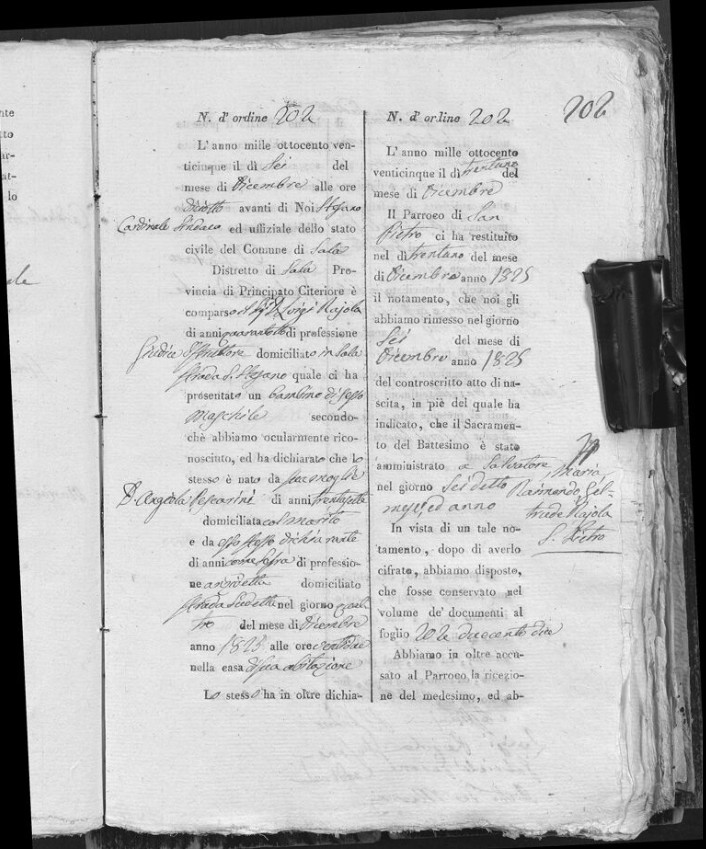 nte
tto
ar-
at-
lo
202
N. d'ordine 202
L'anno mille ottocento ven-
ticinque il dì Sei del
mese di Dicembre alle ore
diciotto avanti di Noi Stefano
Cardinale Sindaco ed uffiziale dello stato
civile del Comune di Sala
Distretto di Sala Pro-
vincia di Principato Citeriore è
comparso D. Luigi Rajola
di anni quarantotto di professione
Giudice Istruttore domiciliato in Sala
strada S. Stefano quale ci ha
presentato un bambino di sesso
maschile secondo-
chè abbiamo ocularmente rico-
nosciuto, ed ha dichiarato che lo
stesso è nato da sua moglie
D. Angiola Pescarini di anni trentasette
domiciliata col marito
e da esso stesso dichiarante
di anni come sopra di professio-
ne anzidetta domiciliato
strada sudetta nel giorno quat-
tro del mese di Dicembre
anno 1825 alle ore ventidue
nella casa di sua abitazione
Lo stesso ha in oltre dichia-
N. d'ordine 202
L'anno mille ottocento
venticinque il dì trentuno del
mese di Dicembre
Il Parroco di San
Pietro ci ha restituito
nel dì trentuno del mese
di Dicembre anno 1825
il notamento, che noi gli
abbiamo rimesso nel giorno
Sei del mese di
Dicembre anno 1825
del controscritto atto di na-
scita, in piè del quale ha
indicato, che il Sacramen-
to del Battesimo è stato
amministrato a Salvatore Maria
nel giorno Sei detto Raimondo Gel-
mese, ed anno trude Rajola
S. Pietro
In vista di un tale no-
tamento, dopo di averlo
cifrato, abbiamo disposto,
che fosse conservato nel
volume de' documenti al
foglio 202 duecento due
Abbiamo in oltre accu-
sato al Parroco la ricezio-
ne del medesimo, ed ab-